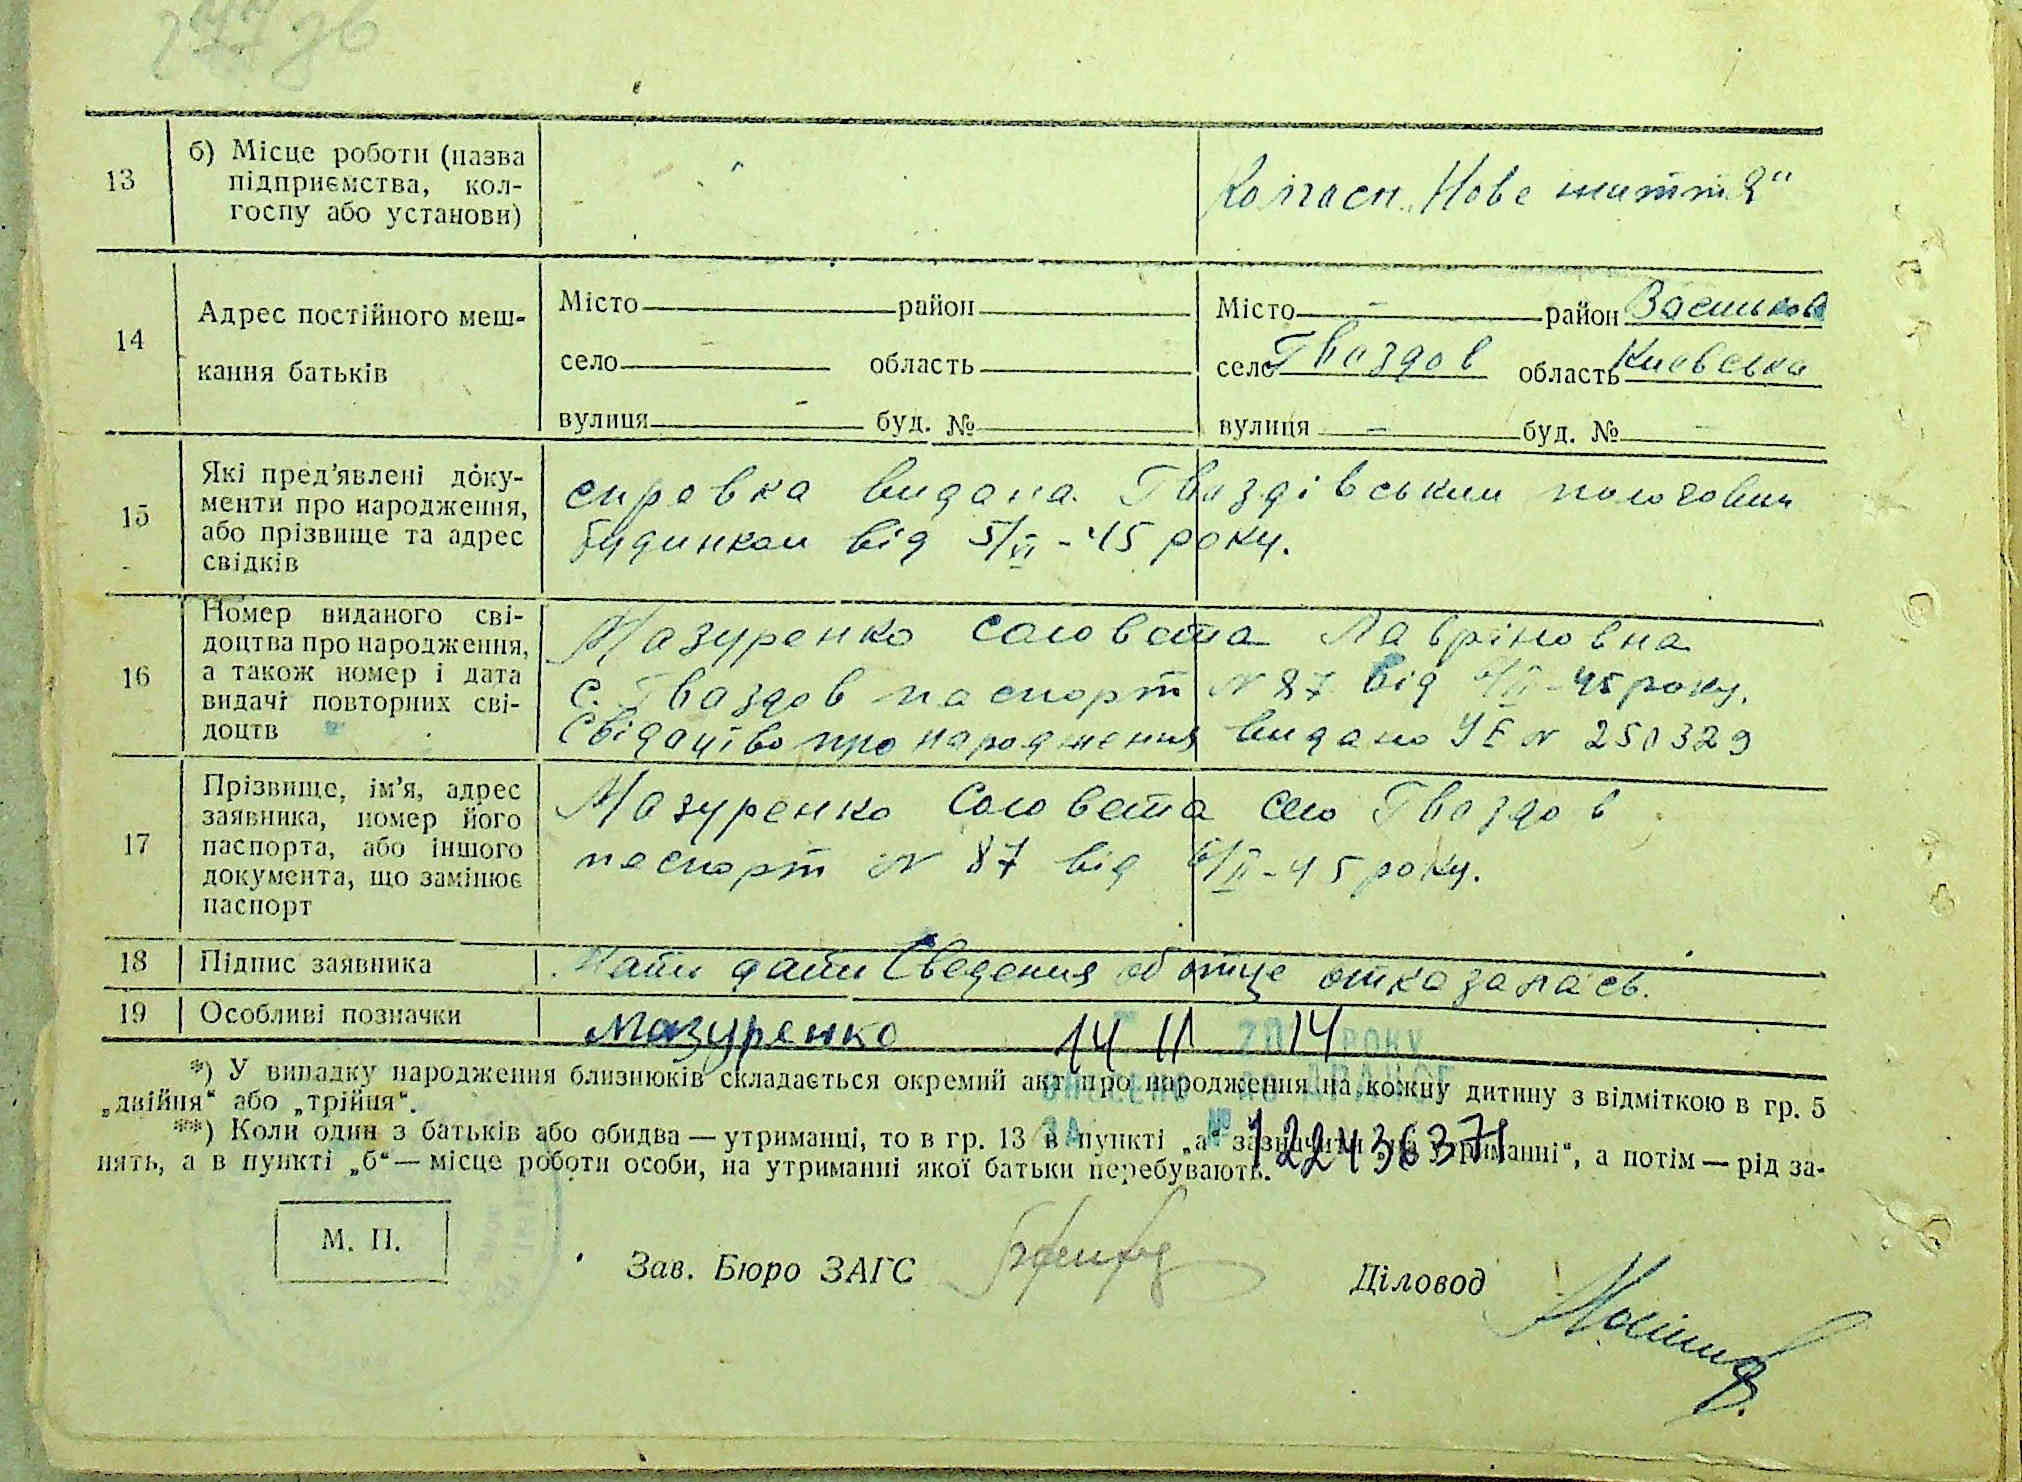 13
б) Місце роботи (назва
підприємства, кол-
госпу або установи)
Колгосп „Нове життя"
14
Адрес постійного меш-
кання батьків
Місто район
село область
вулиця буд. №
Місто - район Васильков
село Гвоздов область Киевська
вулиця - буд. №
15
Які пред'явлені доку-
менти про народження,
або прізвище та адрес
свідків
справка видана Гвоздівським пологовим
будинком від 5/VI - 45 року.
16
Номер виданого сві-
доцтва про народження,
а також номер і дата
видачі повторних сві-
доцтв
Мазуренко Соловета Лавріновна
с. Гвоздов паспорт N 87 від 6/II - 45 року.
Свідоцтво про народження видано УЕ N 250329
17
Прізвище, ім'я, адрес
заявника, номер його
паспорта, або іншого
документа, що замінює
паспорт
Мазуренко Соловета село Гвоздов
паспорт N 87 від 6/II - 45 року.
18
Підпис заявника
Мати дати Сведения об отце отказалась.
19
Особливі позначки
Мазуренко
14 11 2014 РОКУ
*) У випадку народження близнюків складається окремий акт про народження на кожну дитину з відміткою в гр. 5
„двійня" або „трійня".
ВНЕСЕНО ДО ДРАЦСГ
**) Коли один з батьків або обидва — утриманці, то в гр. 13 в пункті „а" утриманні", а потім — рід за-
ЗА № 122436371
нять, а в пункті „б" — місце роботи особи, на утриманні якої батьки перебувають.
М. П.
Зав. Бюро ЗАГС
Діловод